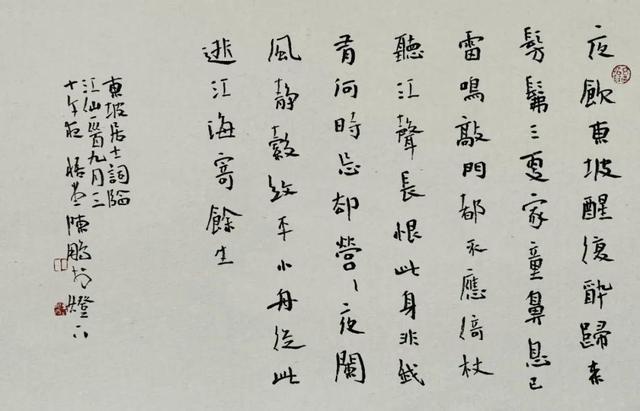 夜飲東坡醒復醉歸來
髣髴三更家童鼻息已
雷鳴敲門都不應倚杖
聽江聲長恨此身非我
有何時忘却營〻夜闌
風静縠紋平小舟從此
逝江海寄餘生
東坡居士詞臨
江仙一首九月三
十午夜 悟堂 陳鵬於燈下